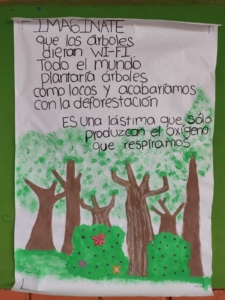 IMAGINATE
que los árboles
dieran WI-FI
Todo el mundo
plantaría árboles
como locos y acabaríamos
con la deforestación
ES una lástima que sólo
produzcan el oxígeno
que respiramos